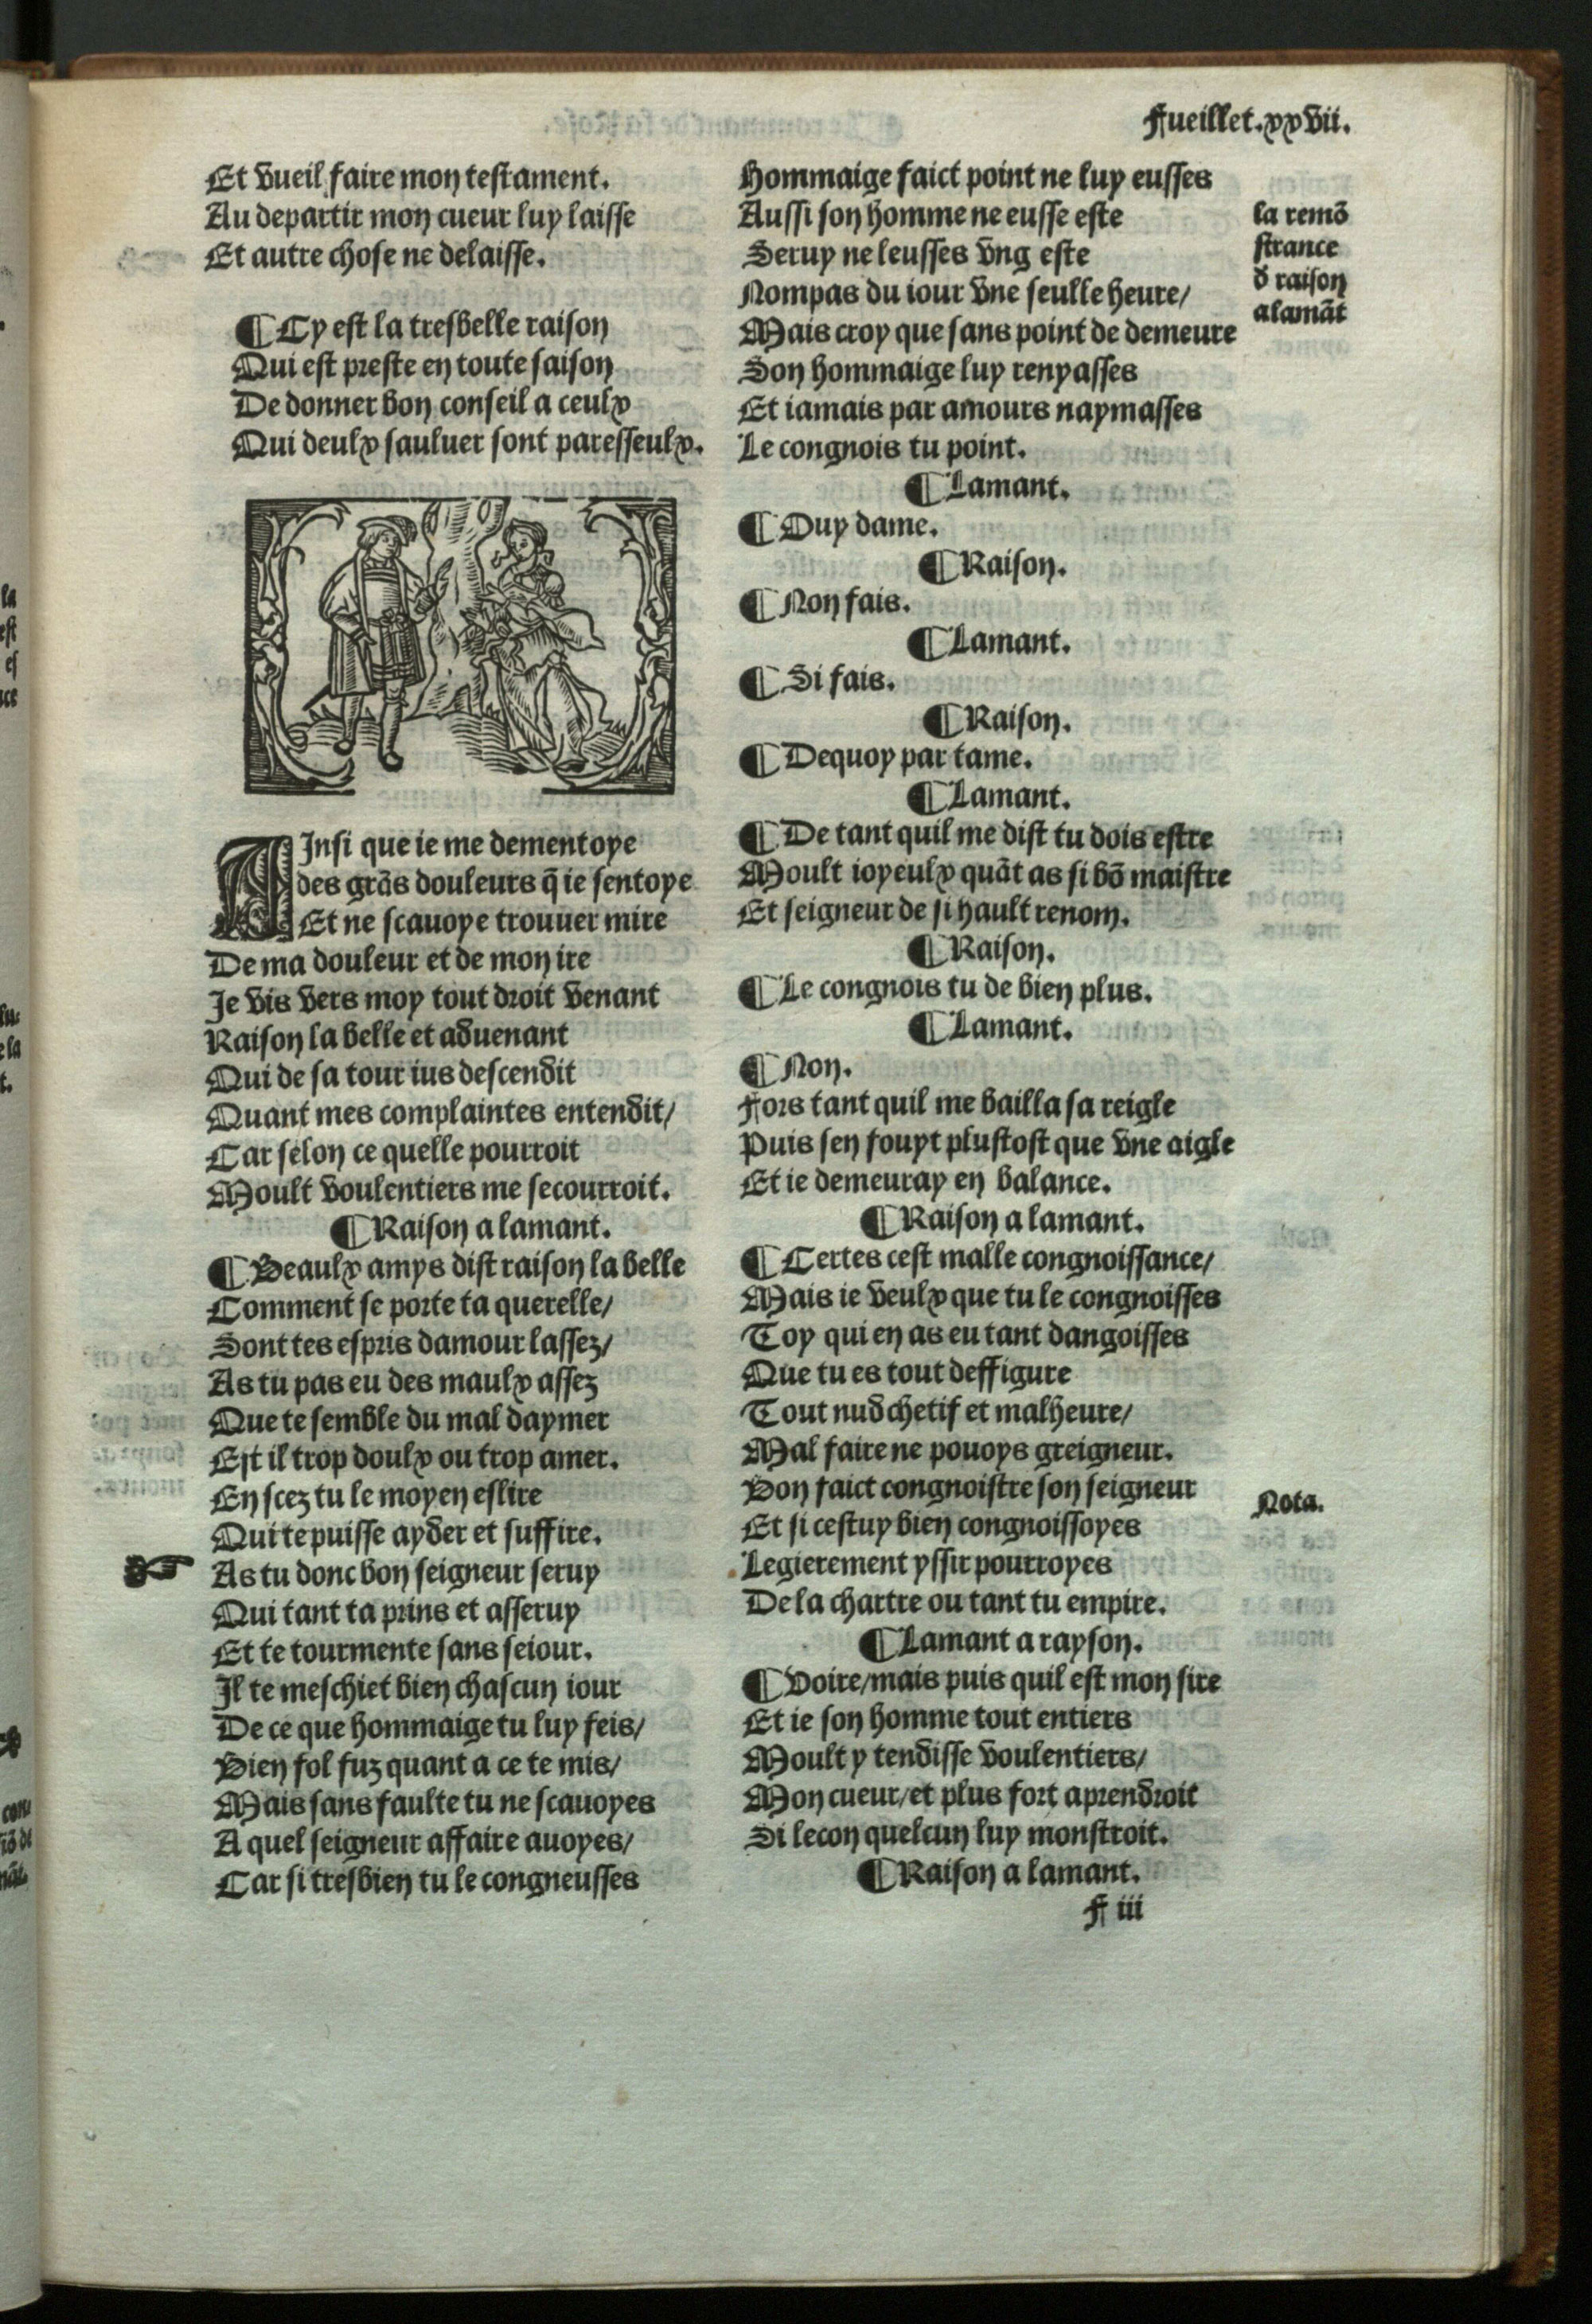 Fueillet.xxvii.
Et vueil faire mon testament.
Au departir mon cueur luy laisse
Et autre chose ne delaisse.
¶ Cy est la tresbelle raison
Qui est preste en toute saison
De donner bon conseil a ceulx
Qui deulx sauluer sont paresseulx.
AInsi que ie me dementoye
des grãs douleurs q̃ ie sentoye
Et ne scauoye trouuer mire
De ma douleur et de mon ire
Je vis vers moy tout droit venant
Raison la belle et aduenant
Qui de sa tour ius descendit
Quant mes complaintes entendit/
Car selon ce quelle pourroit
Moult voulentiers me secourroit.
¶ Raison a lamant.
¶ Beaulx amys dist raison la belle
Comment se porte ta querelle/
Sont tes espris damour lassez/
As tu pas eu des maulx assez
Que te semble du mal daymer
Est il trop doulx ou trop amer.
En scez tu le moyen eslire
Qui te puisse ayder et suffire.
☞ As tu donc bon seigneur seruy
Qui tant ta prins et asseruy
Et te tourmente sans seiour.
Il te meschiet bien chascun iour
De ce que hommaige tu luy feis/
Bien fol fuz quant a ce te mis/
Mais sans faulte tu ne scauoyes
A quel seigneur affaire auoyes/
Car si tresbien tu le congneusses
Hommaige faict point ne luy eusses
Aussi son homme ne eusse este
Seruy ne leusses vng este
Nompas du iour vne seulle heure/
Mais croy que sans point de demeure
Son hommaige luy renyasses
Et iamais par amours naymasses
Le congnois tu point.
¶ Lamant.
¶ Ouy dame.
¶ Raison.
¶ Non fais.
¶ Lamant.
¶ Si fais.
¶ Raison.
¶ Dequoy par tame.
¶ Lamant.
¶ De tant quil me dist tu dois estre
Moult ioyeulx quãt as si bõ maistre
Et seigneur de si hault renom.
¶ Raison.
¶ Le congnois tu de bien plus.
¶ Lamant.
¶ Non.
Fors tant quil me bailla sa reigle
Puis sen fouyt plustost que vne aigle
Et ie demeuray en balance.
¶ Raison a lamant.
¶ Certes cest malle congnoissance/
Mais ie veulx que tu le congnoisses
Toy qui en as eu tant dangoisses
Que tu es tout deffigure
Tout nud chetif et malheure/
Mal faire ne pouoys greigneur.
Bon faict congnoistre son seigneur
Et si cestuy bien congnoissoyes
Legierement yssir pourroyes
De la chartre ou tant tu empire.
¶ Lamant a rayson.
¶ Voire/mais puis quil est mon sire
Et ie son homme tout entiers
Moult y tendisse voulentiers/
Mon cueur/et plus fort aprendroit
Si lecon quelcun luy monstroit.
¶ Raison a lamant.
F iii
la remõ
strance
d̃ raison
a lamãt
Nota.